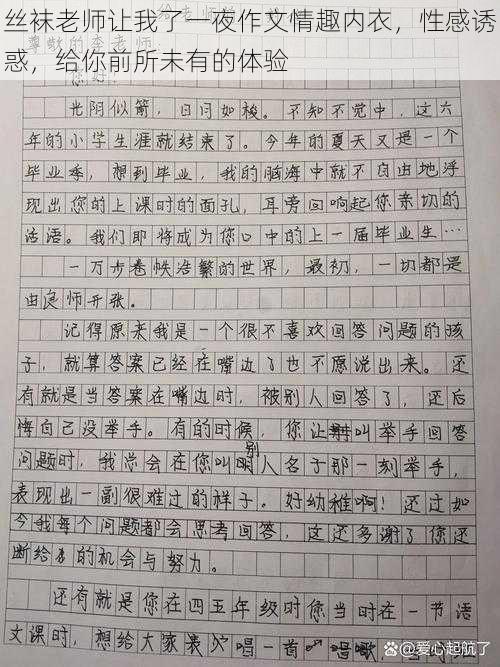 丝袜老师让我了一夜作文情趣内衣，性感诱
惑，给你前所未有的体验
尊敬的李老师：
您好！
光阴似箭，日月如梭。不知不觉中，这六
年的小学生涯就结束了。今年的夏天又是一个
毕业季，想到毕业，我的脑海中就不自由地浮
现出您的上课时的面孔，耳旁回响起您亲切的
话语。我们即将成为您口中的上一届毕业生…
一万步卷帙浩繁的世界，最初，一切都是
由良师开张。
记得原来我是一个很不喜欢回答问题的孩
子，就算答案已经在嘴边了也不愿说出来。还
有就是当答案在嘴边时，被别人回答了，还后
悔自己没举手。有的时候，您让叫举手回答
问题时，我总会在您叫别人名子那一刻举手，
表现出一副很难过的样子。好幼稚啊！还过如
今我每个问题都会思考回答，这还多谢了您还
断给的机会与努力。
还有就是您在四五年级时您当时在一节语
文课时，想给大家表唱一首唱歌
@爱心起航了